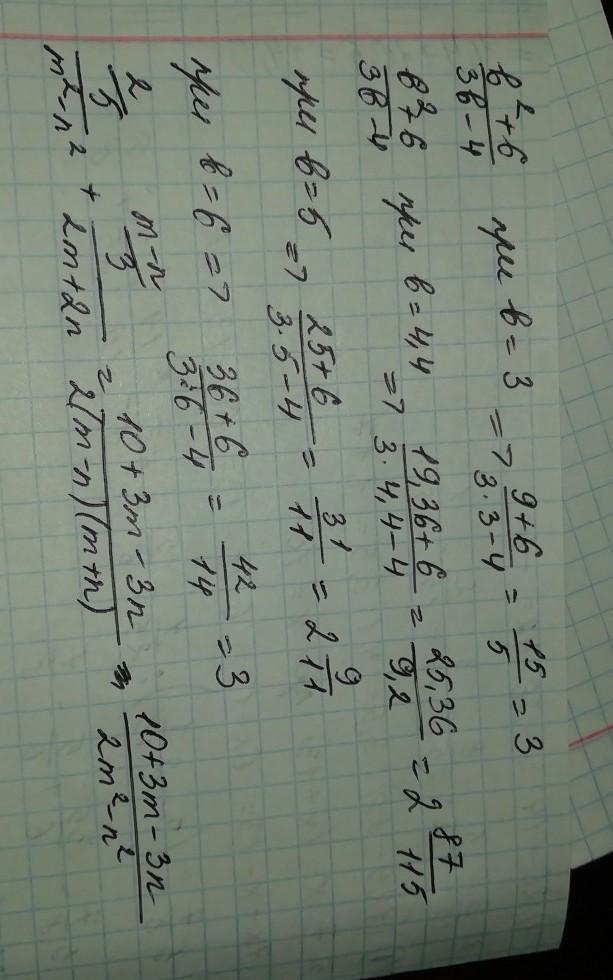 (b² + 6)/(3b - 4) при b = 3 => (9 + 6)/(3·3 - 4) = 15/5 = 3
(b² + 6)/(3b - 4) при b = 4,4 => (19,36 + 6)/(3·4,4 - 4) = 25,36/9,2 = 2 87/115
при b = 5 => (25 + 6)/(3·5 - 4) = 31/11 = 2 9/11
при b = 6 => (36 + 6)/(3·6 - 4) = 42/14 = 3
2 m-n/3
5/(m² - n²) + /(2m + 2n) = (10 + 3m - 3n)/(2(m - n)(m + n)) = (10 + 3m - 3n)/(2m² - n²)